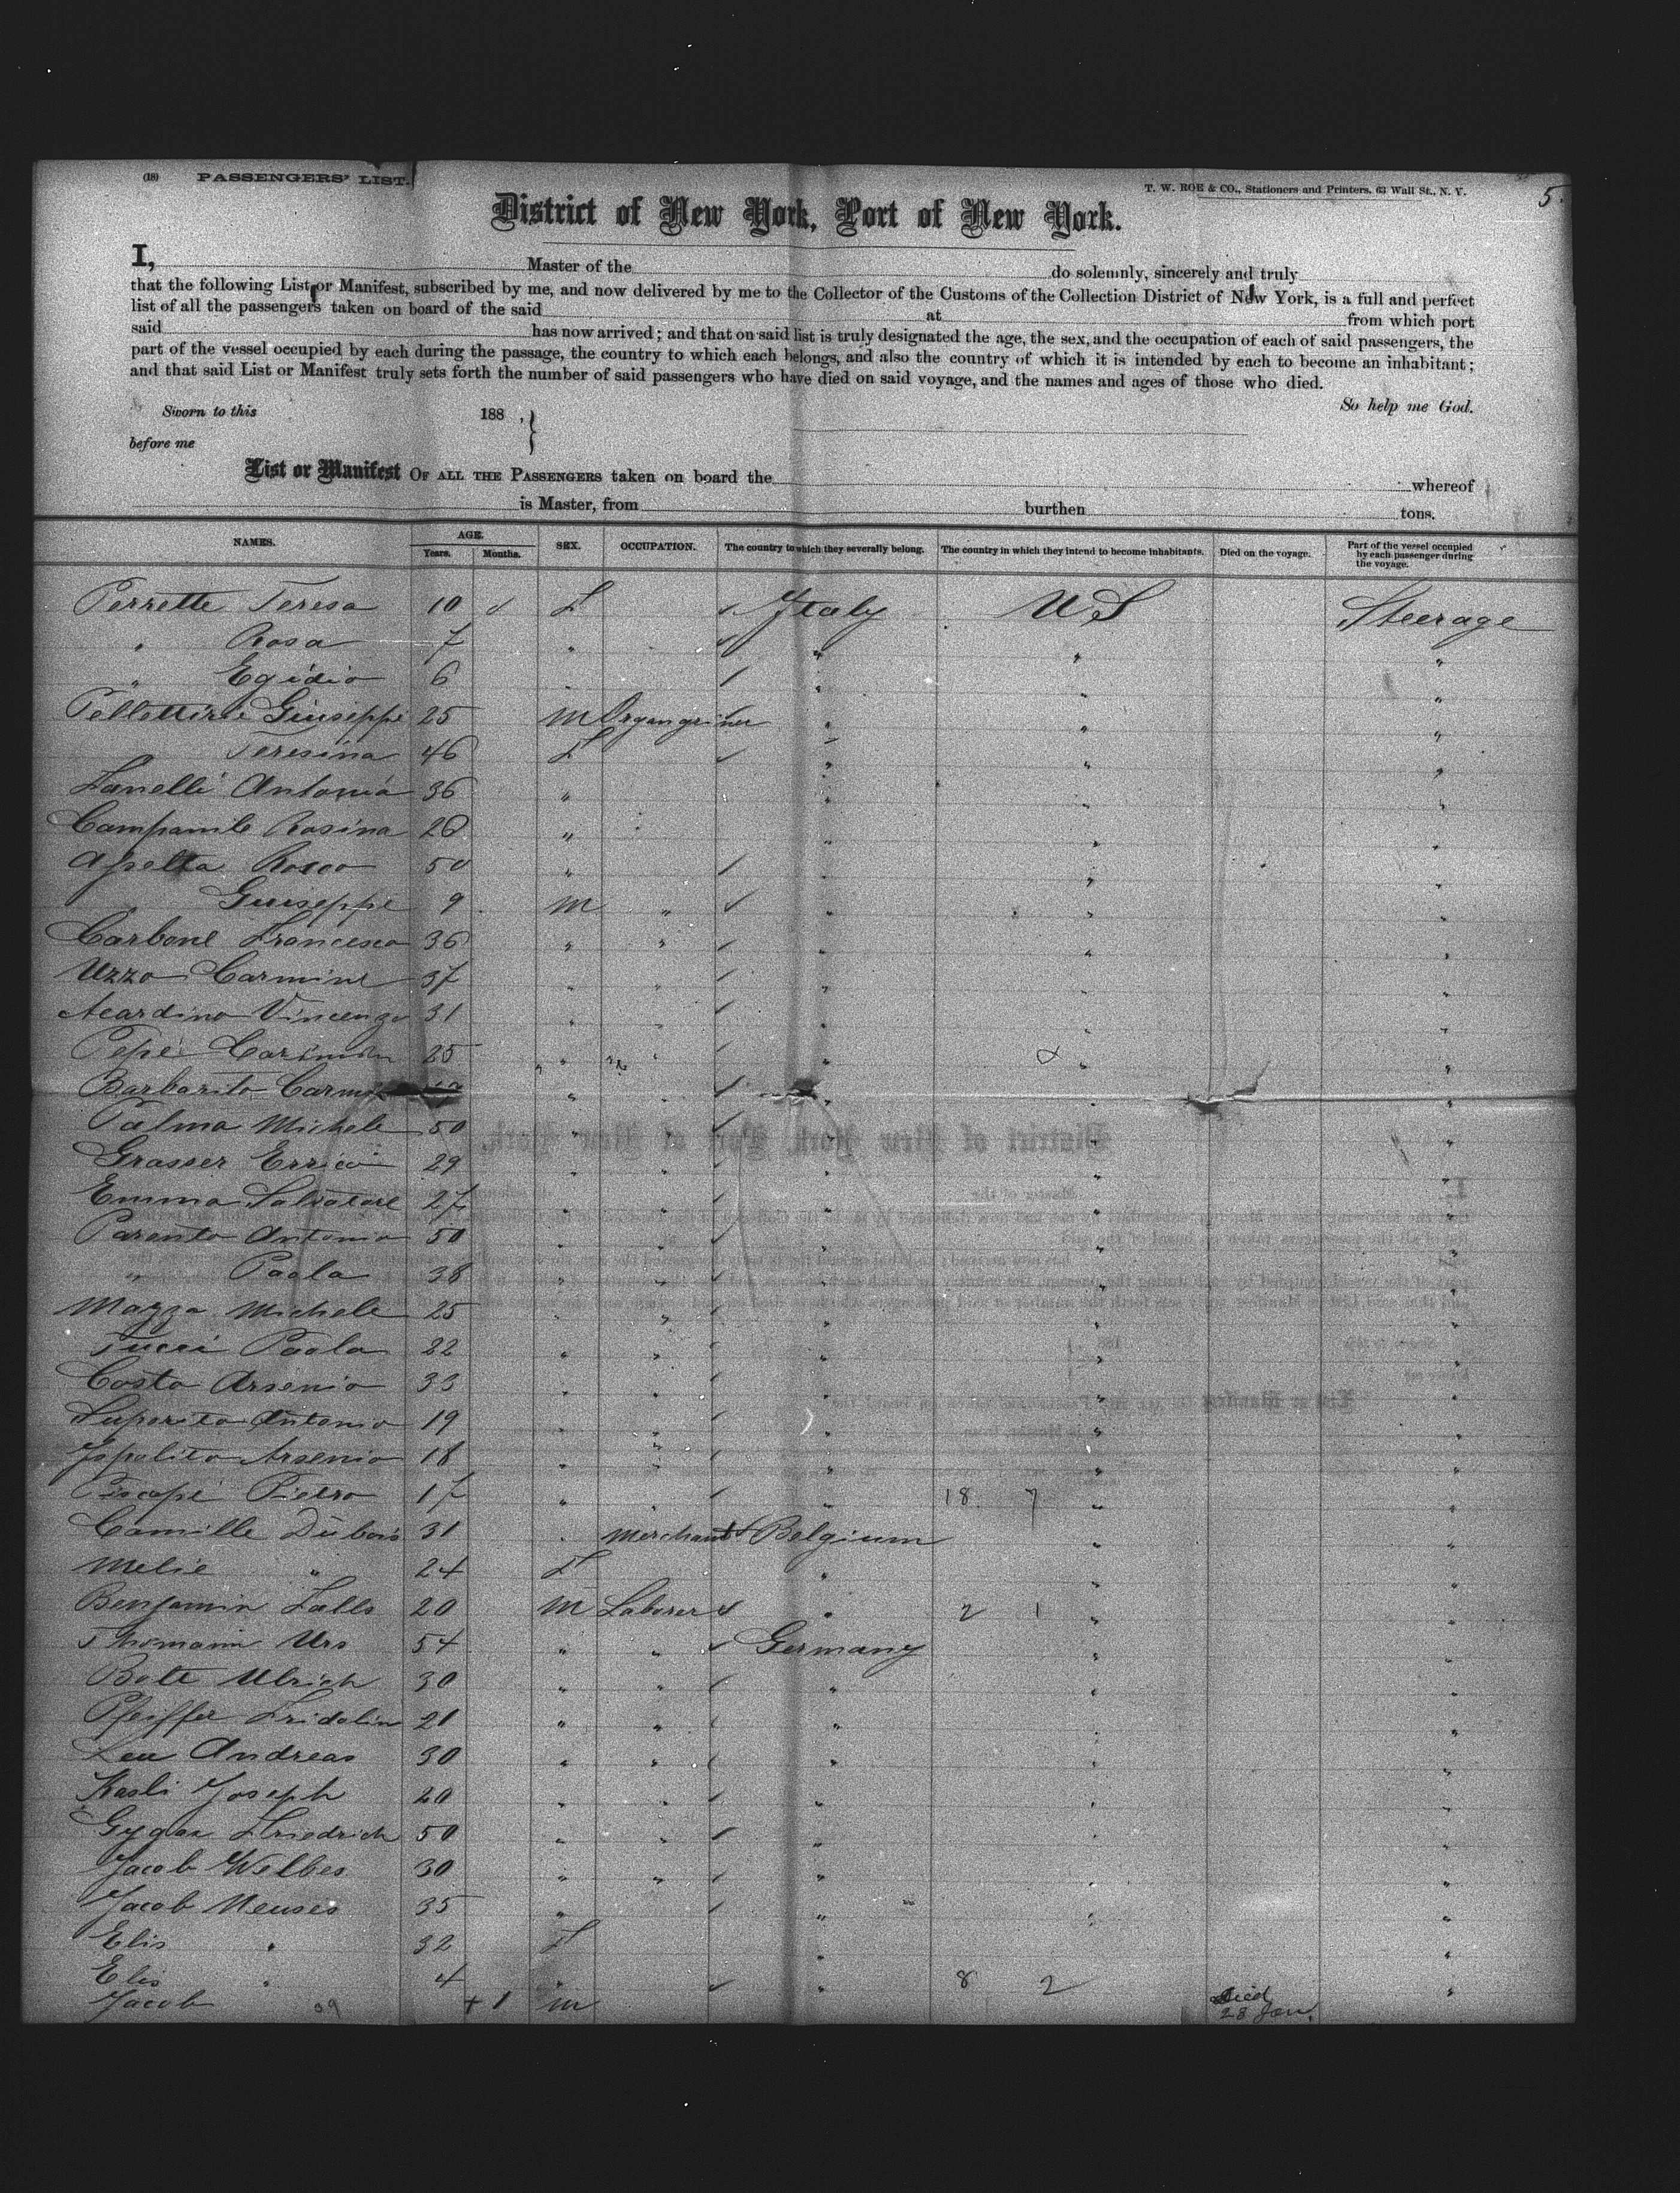 (18) PASSENGERS' LIST.
T. W. ROE & CO., Stationers and Printers, 63 Wall St., N. Y.
5.
District of New York, Port of New York.
I, Master of the do solemnly, sincerely and truly
that the following List or Manifest, subscribed by me, and now delivered by me to the Collector of the Customs of the Collection District of New York, is a full and perfect
list of all the passengers taken on board of the said at from which port
said has now arrived; and that on said list is truly designated the age, the sex, and the occupation of each of said passengers, the
part of the vessel occupied by each during the passage, the country to which each belongs, and also the country of which it is intended by each to become an inhabitant;
and that said List or Manifest truly sets forth the number of said passengers who have died on said voyage, and the names and ages of those who died.
Sworn to this 188 , So help me God.
before me
List or Manifest OF ALL THE PASSENGERS taken on board the whereof
is Master, from burthen tons.
NAMES. AGE. Years. Months. SEX. OCCUPATION. The country to which they severally belong. The country in which they intend to become inhabitants. Died on the voyage. Part of the vessel occupied by each passenger during the voyage.
Perrette Teresa 10 F Italy US Steerage
" Rosa 7 " " " "
" Egidio 6 " " "
Giuseppe 25 M Organgriner " " "
Teresina 46 F " " "
Antonia 36 " " " "
Campanile Rosina 20 " " " "
Rocco 50 " " " "
" Giuseppe 9 M " " " "
Carbone Francesco 36 " " " " "
Uzzo Carmine 37 " " " " "
Acardino Vincenzo 31 " " " " "
Pepe 25 " " " " "
Barbarito " " " " "
Palma Michele 50 " " " " "
Grasser Errico 29 " " " " "
Emma Salvatore 27 " " " " "
Parento Antonio 50 " " " " "
" Paolo 38 " " " " "
Mazza Michele 25 " " " " "
Tucci Paolo 22 " " " " "
Costa Arsenio 33 " " " " "
Antonio 19 " " " " "
Arsenio 18 " " " " "
Pietro 17 " " " 18 7 " "
Camille Dubois 31 Merchant Belgium " "
Melie " 24 F " " "
Benjamin Falls 20 M Laborer " 2 1 " "
Thomann Urs 54 " " Germany " "
Bott Ulrich 30 " " " " "
Pfeiffer Fridolin 21 " " " " "
Leu Andreas 30 " " " " "
Kasli Joseph 20 " " " " "
Gygax Friedrich 50 " " " " "
Jacob Welbes 30 " " " " "
Jacob Meuses 35 " " " "
Elis " 32 F " "
Elis " 4 " " 8 2 "
Jacob 09 1 M Died 28 Jan.